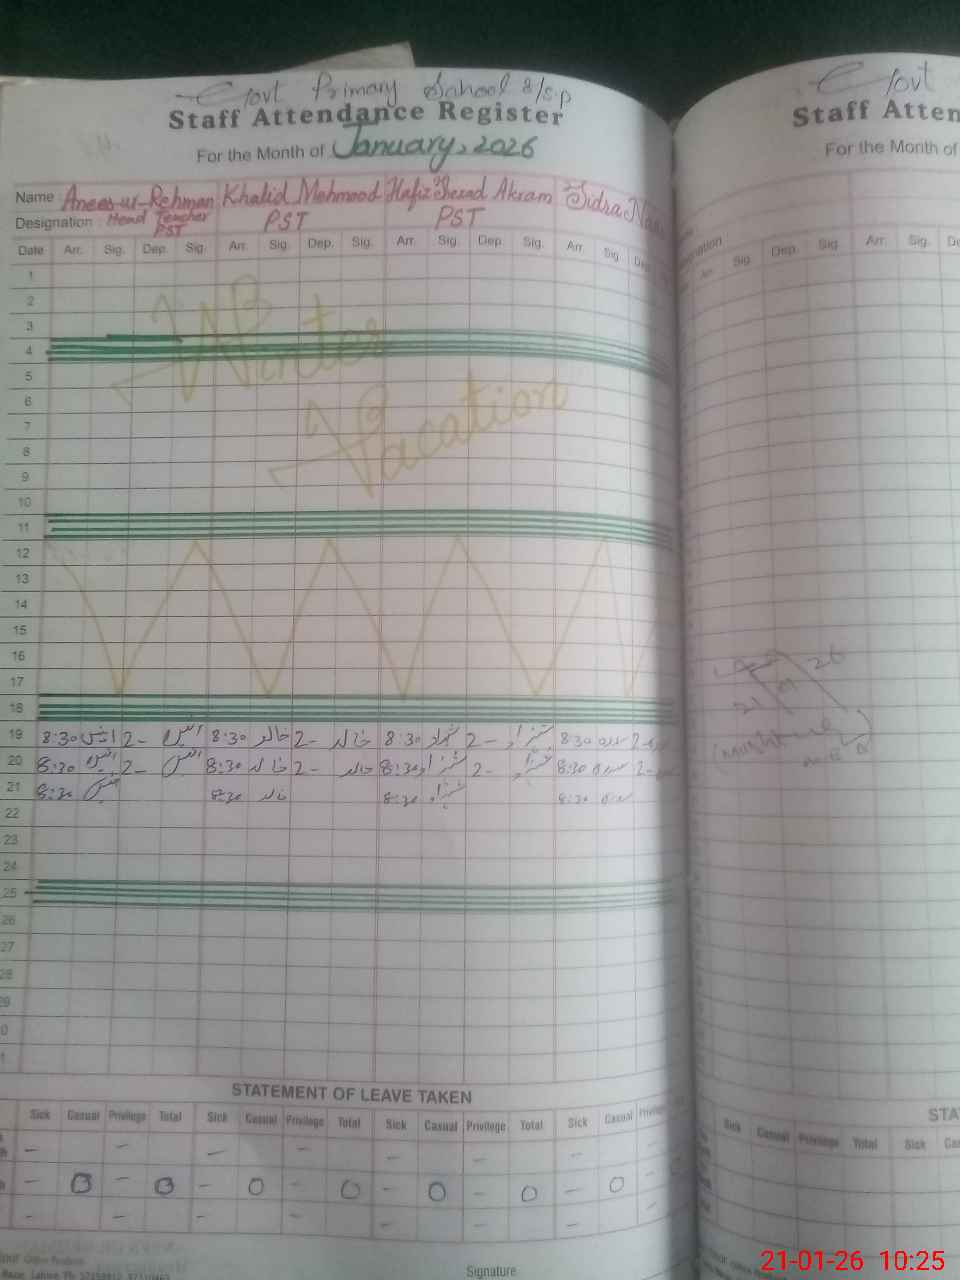 Govt Primary School 8/s.p
Staff Attendance Register
For the Month of January, 2026
Name Anees-ur-Rehman Khalid Mehmood Hafiz Shezad Akram Sidra
Designation Head Teacher PST PST PST
Date Arr. Sig. Dep. Sig. Arr. Sig. Dep. Sig. Arr. Sig. Dep. Sig. Arr. Sig. Dep.
1
2
3
4
5
6
7
8
9
10
11
Winter
Vacation
12
13
14
15
16
17
18
19 8:30 انیس 2- انیس 8:30 خالد 2- خالد 8:30 شہزاد 2- شہزاد 8:30 سدرہ 2-
20 8:30 انیس 2- انیس 8:30 خالد 2- خالد 8:30 شہزاد 2- شہزاد 8:30 سدرہ 2-
21 8:30 انیس 8:30 خالد 8:30 شہزاد 8:30 سدرہ
22
23
24
25
26
27
28
STATEMENT OF LEAVE TAKEN
Sick Casual Privilege Total Sick Casual Privilege Total Sick Casual Privilege Total Sick Casual
- - - - - - -
- 0 - 0 - 0 - 0 - 0 - 0 - 0 -
- - - - - - -
Signature
Govt
Staff Atten
For the Month of
Dep. Sig. Arr. Sig.
STA
Sick Casual Privilege Total Sick
21-01-26 10:25